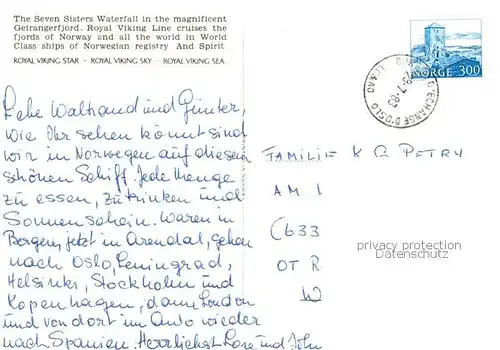 The Seven Sisters Waterfall in the magnificent
Geirangerfjord. Royal Viking Line cruises the
fjords of Norway and all the world in World
Class ships of Norwegian registry And Spirit
ROYAL VIKING STAR · ROYAL VIKING SKY · ROYAL VIKING SEA
NORGE 300
Waltraud und Günter,
wie Ihr sehen könnt sind
wir in Norwegen auf diesem
schönen Schiff. Jede Menge
zu essen, zu trinken und
Sonnenschein. Waren in
Bergen, jetzt in Arendal, gehen
nach Oslo, Leningrad,
Helsinki, Stockholm und
Kopenhagen, dann London
und von dort im Auto wieder
nach Spanien. Herrlichst Rose und John
FAMILIE K G PETRY
AM
633
OT R
W
privacy protection
Datenschutz